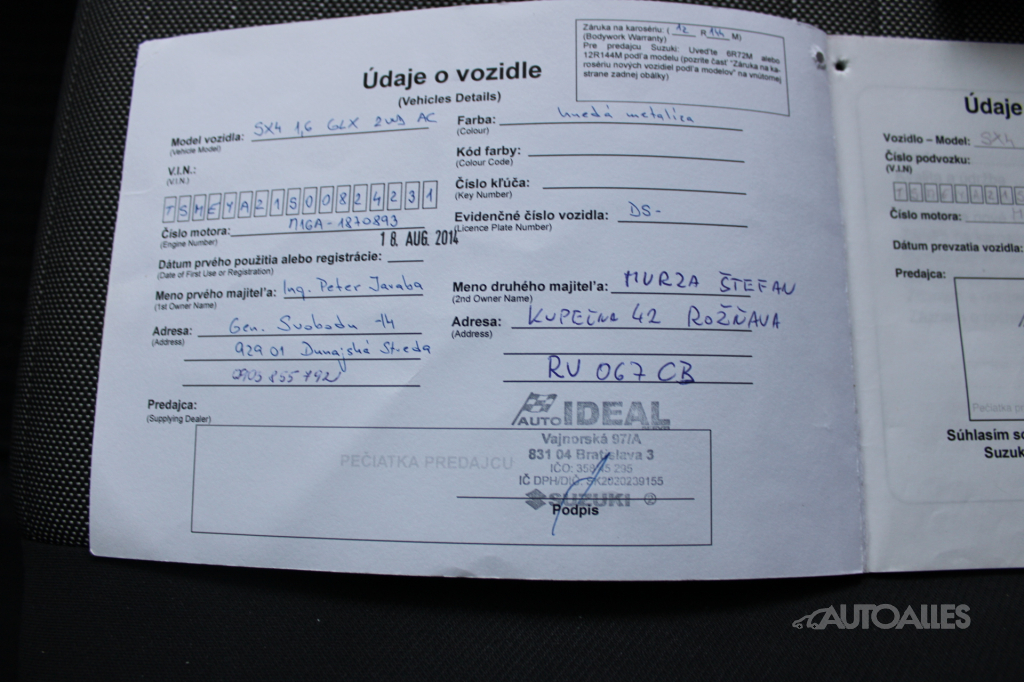 Záruka na karosériu: ( 12 R 144 M)
(Bodywork Warranty)
Pre predajcu Suzuki: Uveďte 6R72M alebo
12R144M podľa modelu (pozrite časť "Záruka na ka-
rosériu nových vozidiel podľa modelov" na vnútornej
strane zadnej obálky)
Údaje o vozidle
(Vehicles Details)
Model vozidla: SX4 1,6 GLX 2WD AC
(Vehicle Model)
V.I.N.:
(V.I.N.)
TSMEYA21S00824231
Číslo motora: M16A-1870893
(Engine Number)
18. AUG. 2014
Dátum prvého použitia alebo registrácie:
(Date of First Use or Registration)
Meno prvého majiteľa: Ing. Peter Jaraba
(1st Owner Name)
Adresa: Gen. Svobodu 14
(Address)
929 01 Dunajská Streda
0903 855 792
Farba: hnedá metalíza
(Colour)
Kód farby:
(Colour Code)
Číslo kľúča:
(Key Number)
Evidenčné číslo vozidla: DS-
(Licence Plate Number)
Meno druhého majiteľa: MURZA ŠTEFAN
(2nd Owner Name)
Adresa: 42 ROŽŇAVA
(Address)
RV 067 CB
Predajca:
(Supplying Dealer)
PEČIATKA PREDAJCU
AUTO IDEAL
Vajnorská 97/A
831 04 Bratislava 3
IČO: 295
IČ DPH/DIČ: SK2020239155
SUZUKI 2
Podpis
Údaje
Vozidlo – Model: SX4
Číslo podvozku:
(V.I.N)
TSMEYA21S
Číslo motora:
Dátum prevzatia vozidla:
Predajca:
Pečiatka
Súhlasím
Suzuk
AUTOALLES